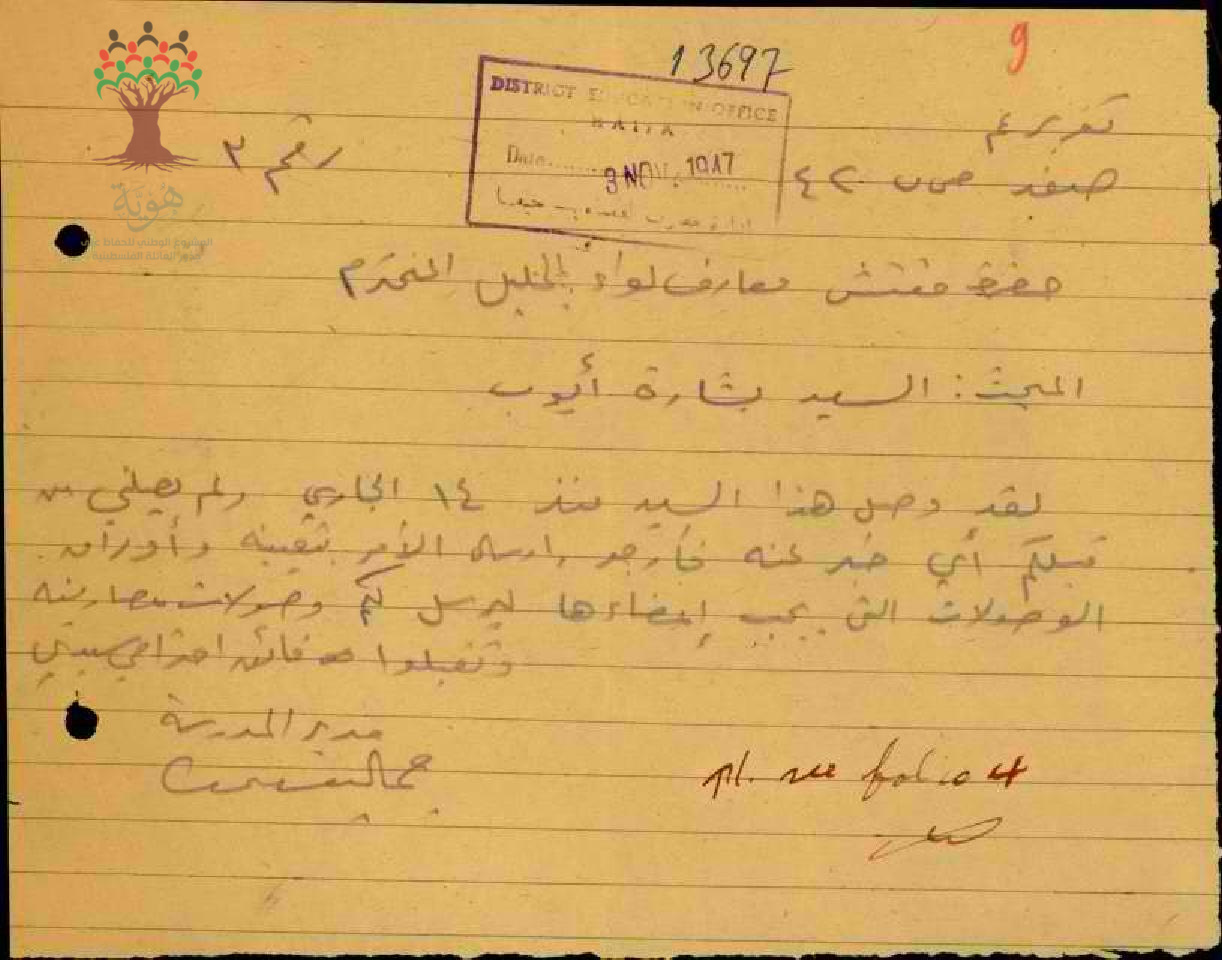 13697
9
DISTRICT EDUCATION OFFICE
HAIFA
Date 3 NOV. 1947
ادارة معارف حيفا
صفد ص ب ٤٢
رقم ٣
هُوِيَّة
المشروع الوطني للحفاظ على
جذور العائلة الفلسطينية
حضرة مفتش معارف لواء الجليل المحترم
المبحث: السيد بشارة أيوب
لقد وصل هذا السيد منذ ١٤ الجاري ولم يصلني من
قبلكم أي خبر عنه فأرجو ارسال الأمر بتعيينه وأوراق
الوصولات التي يجب إمضاءها ليرسل لكم وصولات مصاريفه
وتفضلوا فائق احترامي سيدي
مدير المدرسة
pl. see folio 4